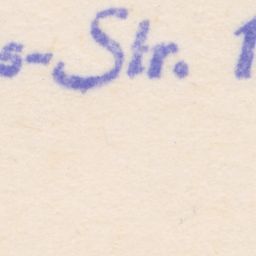 s-Str. 1